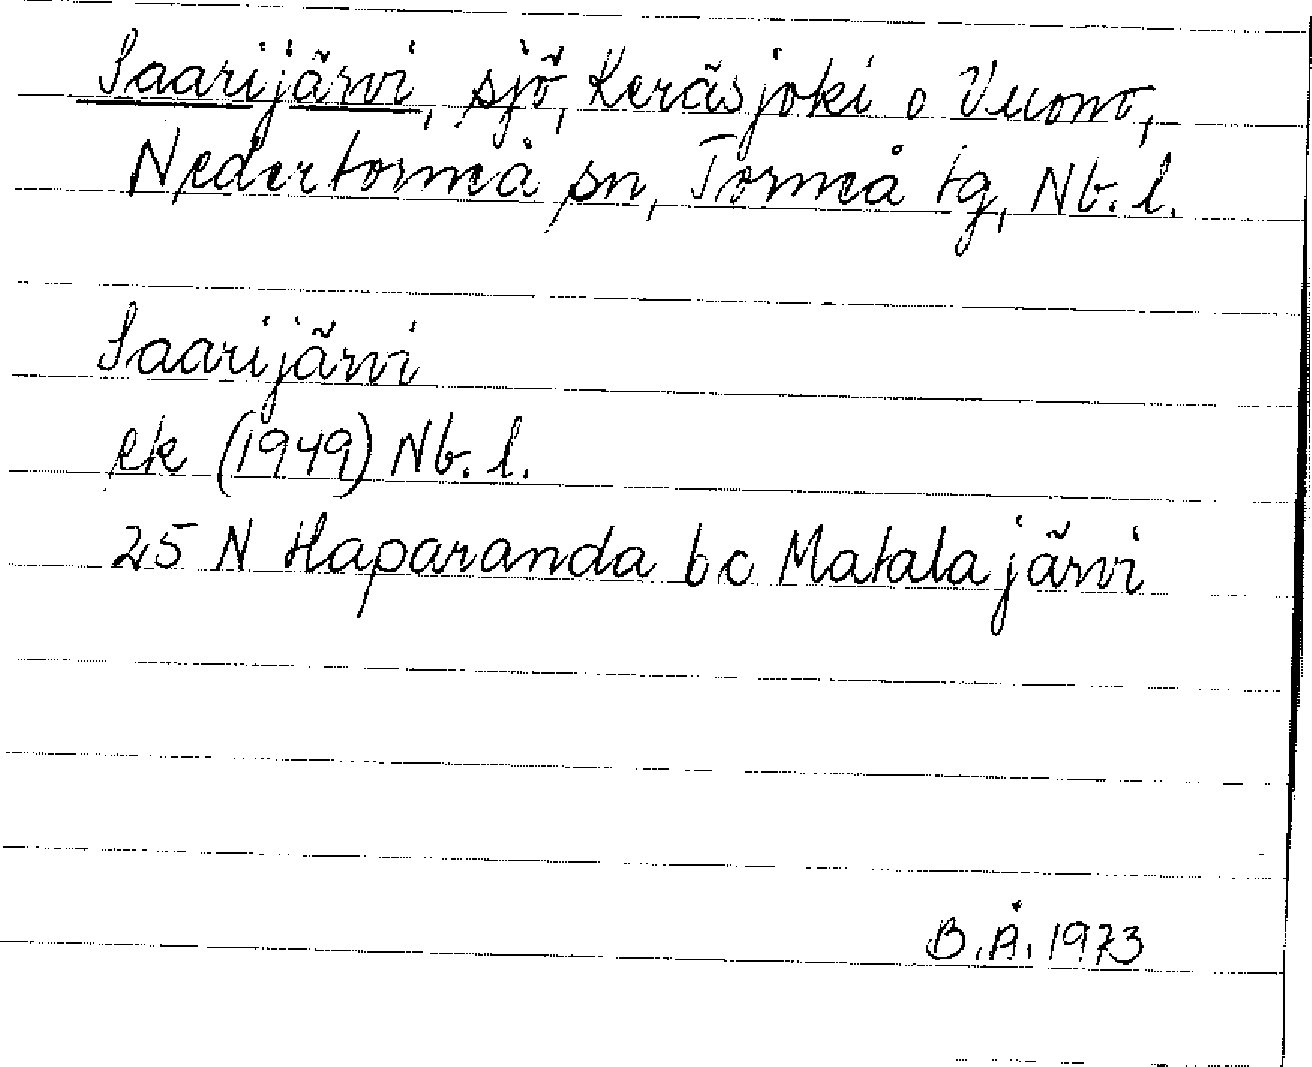 Saarijärvi, sjö, Keräsjoki o Vuono,
Nedertorneå sn, Torneå tg, Nb. l.
Saarijärvi
ek (1949) Nb. l.
25 N Haparanda bc Matalajärvi
B.Å. 1973